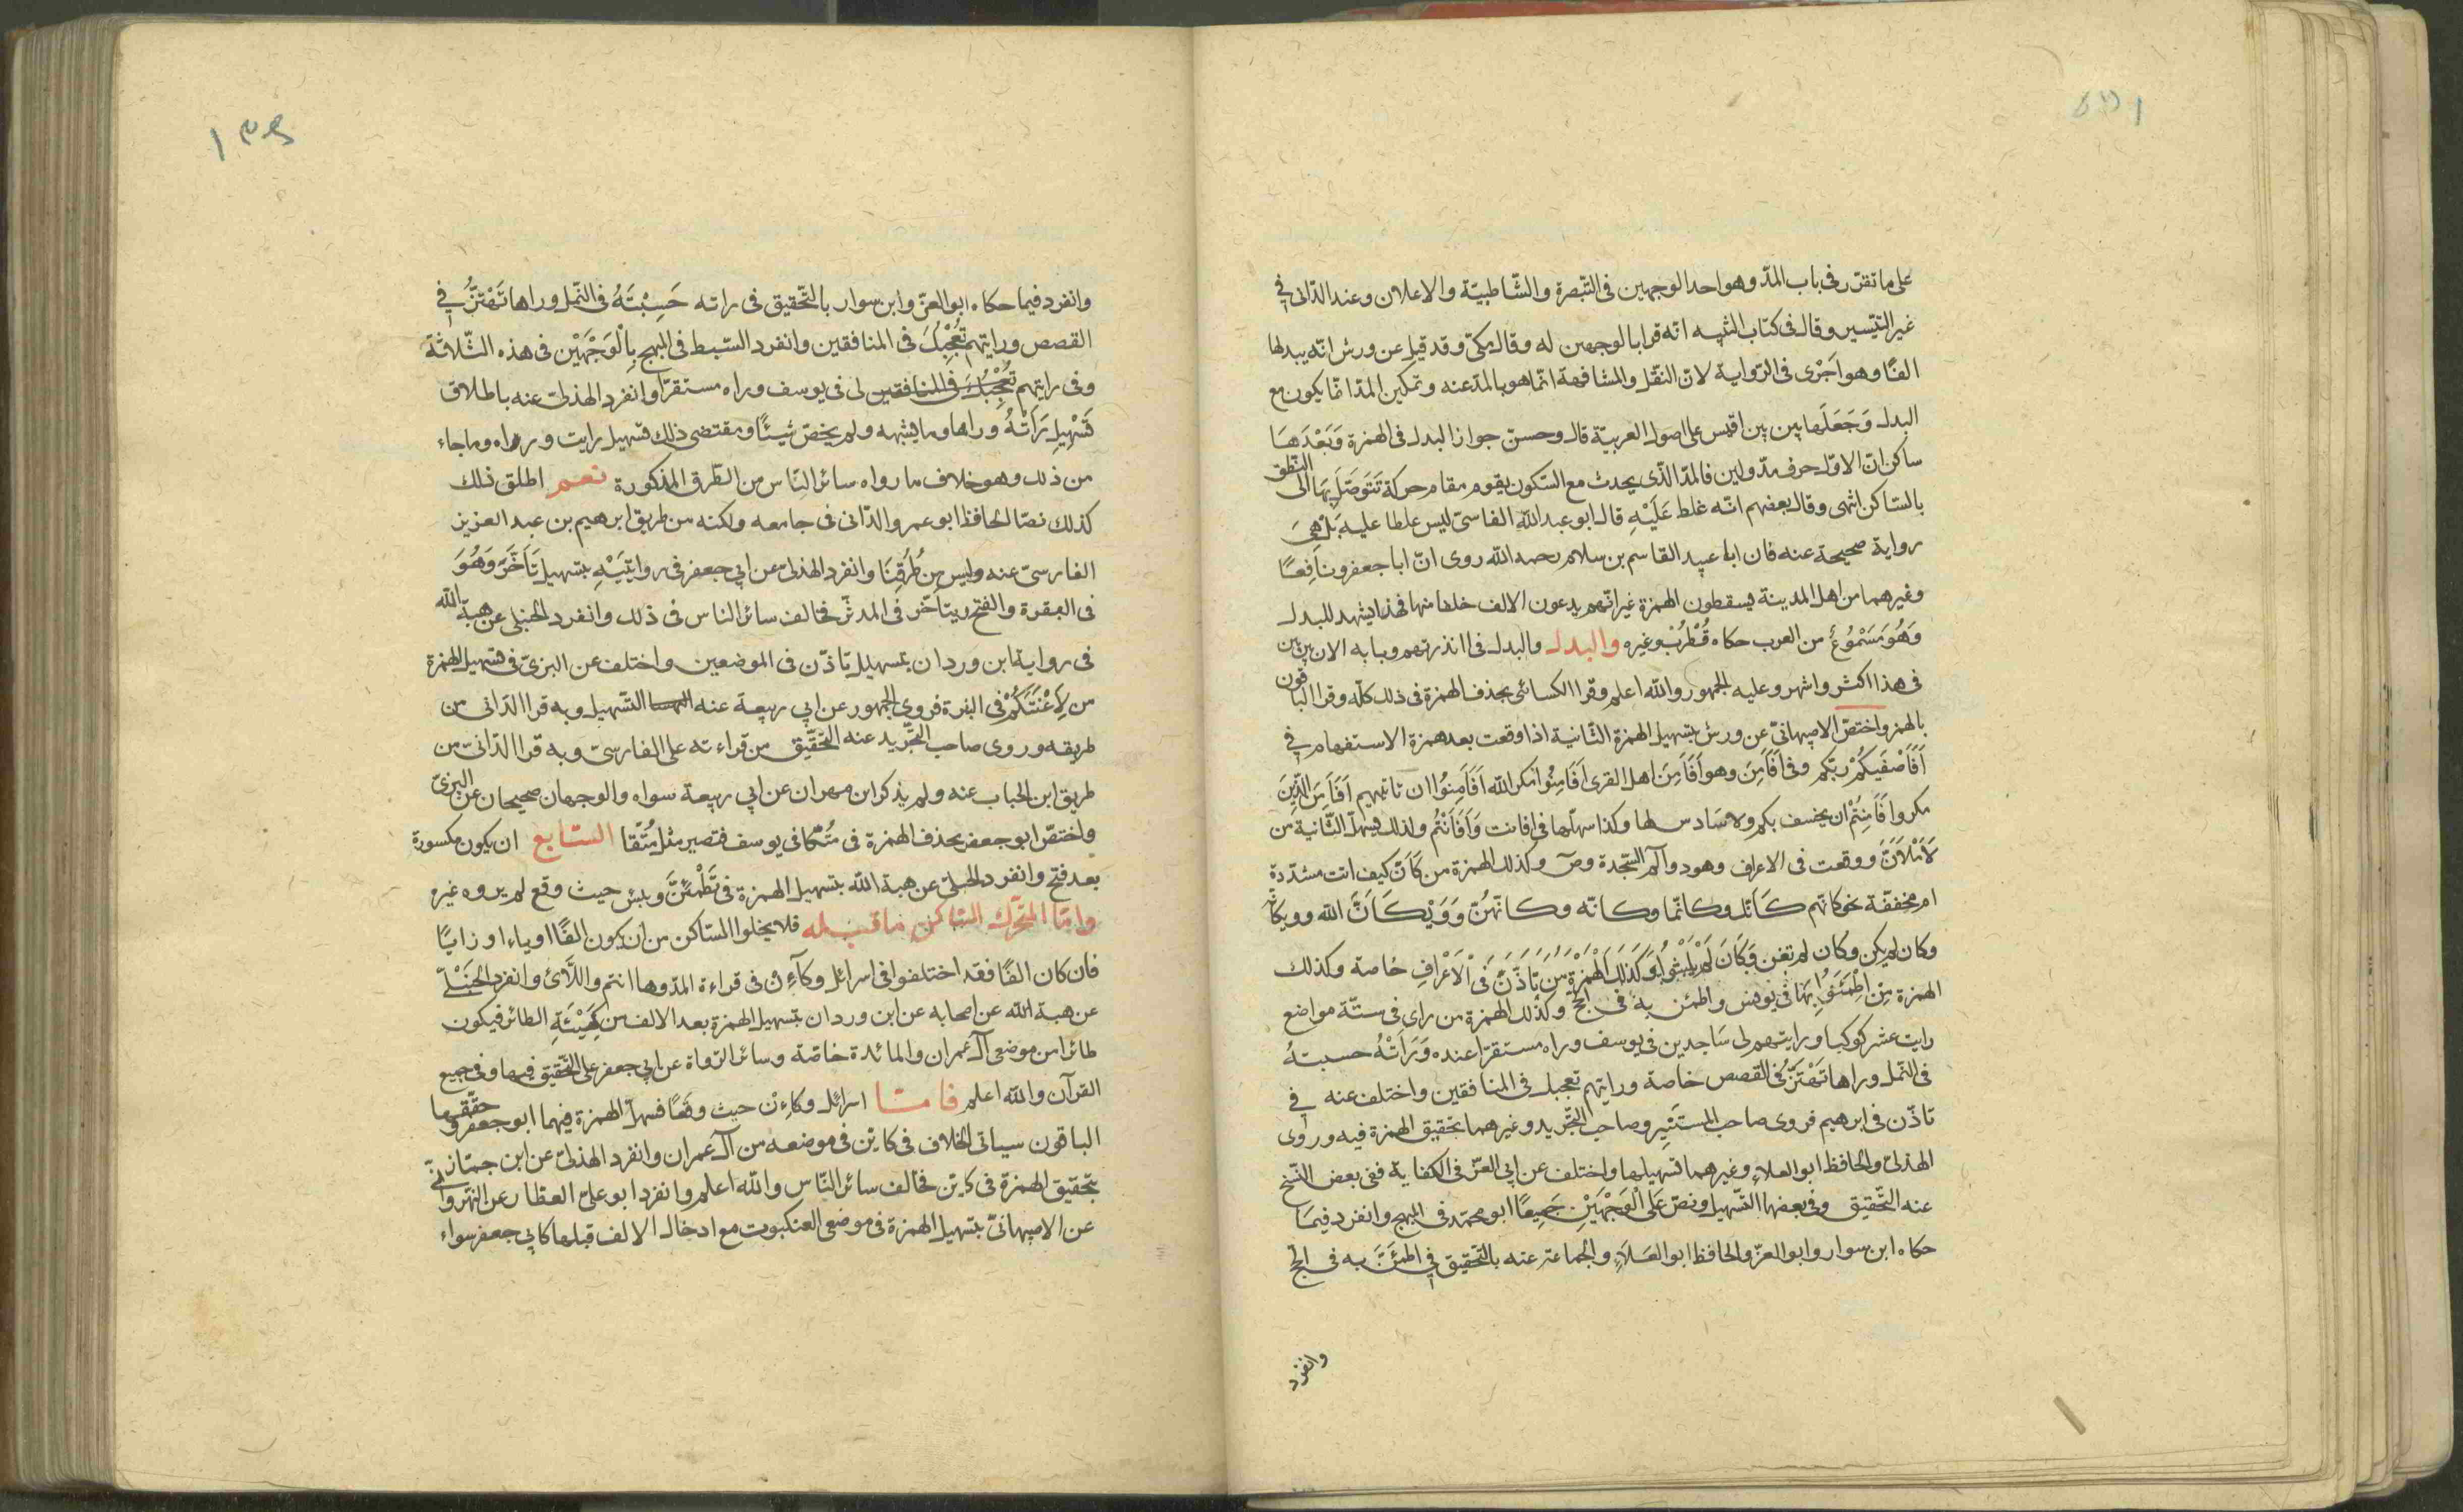 على ما تقرر فى باب المدّ وهو احد الوجهين فى التّبصرة والشّاطبيّة والاعلان وعند الدّانى في
غير التيّسير وقال فى كتاب التنبيه انّه قرا بالوجهين له وقال مكىّ وقد قيل عن ورش انّه يبدلها
الفًا وهو اَجْرٰى فى الرّواية لانّ النّقل والمشافهة انّما هو بالمدّ عنه وتمكين المدّ انّما يكون مع
البدل وَجَعَلَها بين بين اقيس على اصول العربيّة قال وحسن جواز البدل فى الهمزة وَبَعْدَهَا
ساكن انّ الاوّل حرف مدّ ولين فالمدّ الذّى يحدث مع السّكون يقوم مقام حركة تَتَوصَّلُ بِهَا الى النّطق
بالسّاكن انتهى وقال بعضهم انّه غلط عَلَيْهِ قال ابو عبد اللّه الفاسىّ ليس غلطا عليه بَلْ هِىَ
رواية صحيحة عنه فان ابا عبيد القاسم بن سلام رحمه اللّه روى انّ ابا جعفر ونَافِعًا
وغيرهما من اهل المدينة يسقطون الهمزة غير انّهم يدعون الالف خلفا منها فهذا يشهد للبدل
وَهُوَ مَسْمُوعٌ من العرب حكاه قُطْرُبْ وغيره والبدل والبدل فى اانذرتهم وبابه الان بين بين
فى هذا اكثر واشهر وعليه الجمهور واللّه اعلم وقرا الكسائى بحذف الهمزة فى ذلك كلّه وقرا الباقون
بالهمز واختصّ الاصبهانىّ عن ورش بتسهيل الهمزة الثّانية اذا وقعت بعد همزة الاستفهام في
اَفَاَصْفَيكُمْ ربّكم وفى اَفَاَمِنَ وهو اَفَاَمِنَ اهل القرى اَفَاَمِنُوا مكر اللّه اَفَاَمِنُوا ان تاتيهم اَفَاَمِنَ الَّذِينَ
مكروا اَفَاَمِنْتُمْ ان يخسف بكم ولا سَادس لها وكذا سهّلها في افانت وَاَفَاَنْتُم وكذلك سهّل الثّانية من
لَاَمْلَاَنَّ ووقعت فى الاعراف وهود والٓم السّجدة وصٓ وكذلك الهمزة من كَاَنَّ كيف اتت مشدّدة
ام مخففّة نحو كانّهم كَاَنَّك وكانّما وكانّه وكانّهُنّ وَوَيْكَاَنَّ اللّه وويكانّه
وكان لم يكن وكان لم تغن وَكَاَنَ لَمْ يَلْبَثُوا وَكَذلِكَ الْهَمْزَةِ مِنْ تَاَذَّنَ فِى الْاَعْرَافِ خاصة وكذلك
الهمزة مِنْ اطْمَئَنُّوا بِهَا فى يونس واطمئن به فى الحج وكذلك الهمزة من راى فى ستّة مواضع
رايت عشر كوكبا ورايتهم لى سَاجدين فى يوسف وراه مستقرّا عنده وَرَاَتْهُ حسبتهُ
فى النّمل وراها تَهْتَزُّ فى القصص خاصة ورايتهم تعجبك فى المنافقين واختلف عنه في
تاذّن فى ابرهيم فروى صاحب المستنير وصاحب التّجريد وغيرهما بتحقيق الهمزة فيه وروى
الهذلىّ والحافظ ابو العلاء وغيرهما تسهيلها واختلف عن ابى العزّ فى الكفاية ففى بعض النّسخ
عنه التّحقيق وفى بعضها التّسهيل ونصّ عَلى الْوَجْهَيْنِ جَمِيعًا ابو محمّد فى المبهج وانفرد فيمَا
حكاه ابن سوار وابو العزّ والحافظ ابو العَلَاءِ والجماعة عنه بالتّحقيق في اطمئنَّ به فى الحجّ
وانفرد
وانفرد فيما حكاه ابو العزّ وابن سوار بالتّحقيق فى راته حَسِبْتَهُ فى النّمل وراها تَهْتَزُّ في
القصص ورايتهم تُعْجِبُكَ فى المنافقين وانفرد السّبط فى المبهج بِالْوَجْهَيْنِ فى هذه الثّلاثة
وفى رايتهم تُعْجِبُكَ فى المنافقين لى فى يوسف وراه مستقرّا وانفرد الهذلىّ عنه باطلاق
تَسْهِيلِ رَاَتْهُ وراها وما يشبهه ولم يخصّ شيئًا ومقتضى ذلك تسهيل رايت وراه وما جاء
من ذلك وهو خلاف ما رواه سائر النّاس من الطّرق المذكورة نعم اطلق ذلك
كذلك نصّا الحافظ ابو عمرو الدّانى فى جامعه ولكنه من طريق ابرهيم بن عبد العزيز
الفارسىّ عنه وليس من طُرُقِنَا وانفرد الهذلىّ عن ابى جعفر فى روايتَيْهِ بتسهيل تَاَخَّرَ وَهُوَ
فى البقرة والفتح ويتاَخّر فى المدثّر فخالف سائر الناس فى ذلك وانفرد الحنبلى عن هبة اللّه
فى رواية ابن وردان بتسهيل تاذّن فى الموضعين واختلف عن البزىّ فى تسهيل الهمزة
من لَاَعْنَتَكُمْ فى البقرة فروى الجمهور عن ابى ربيعة عنه التّسهيل وبه قرا الدّانى من
طريقه وروى صاحب التّجريد عنه التّحقيق من قراءته على الفارسىّ وبه قرا الدّانىّ من
طريق ابن الحباب عنه ولم يذكر ابن مهران عن ابى ربيعة سواه والوجهان صحيحان عن البزىّ
واختصّ ابو جعفر بحذف الهمزة فى مُتّكا فى يوسف فتصير مثل مُتّقا السّابع ان يكون مكسورة
بعد فتح وانفرد الحنبلىّ عن هبة اللّه بتسهيل الهمزة فى تَطْمَئِنَّ وبئس حيث وقع لم يروه غيره
وامّا المتحرّك السّاكن ما قبله فلا يخلوا السّاكن من ان يكون الفًا او ياء او زايًا
فان كان الفًا فقد اختلفوا فى اسرائل وكاَئِن فى قراءة المدّ وها انتم واللَّائى وانفرد الْحَنْبَلىّ
عن هبة اللّه عن اصحابه عن ابن وردان بتسهيل الهمزة بعد الالف من كَهَيْئَةِ الطائر فيكون
طائرا من موضعى آل عمران والمائدة خاصّة وسائر الرّواة عن ابى جعفر على التّحقيق فيها وفى جميع
القرآن واللّه اعلم فامّا اسرائل وكاءن حيث وقعًا فسهّل الهمزة فيهما ابو جعفر وحقّقها
الباقون سياتى الخلاف فى كاين فى موضعه من آل عمران وانفرد الهذلىّ عن ابن جمّاز
بتحقيق الهمزة فى كاين فخالف سائر النّاسِ واللّه اعلم وانفرد ابو علىّ العطّار عن النهروانى
عن الاصبهانىّ بتسهيل الهمزة فى موضعى العنكبوت مع ادخال الالف قبلها كابى جعفر سواء